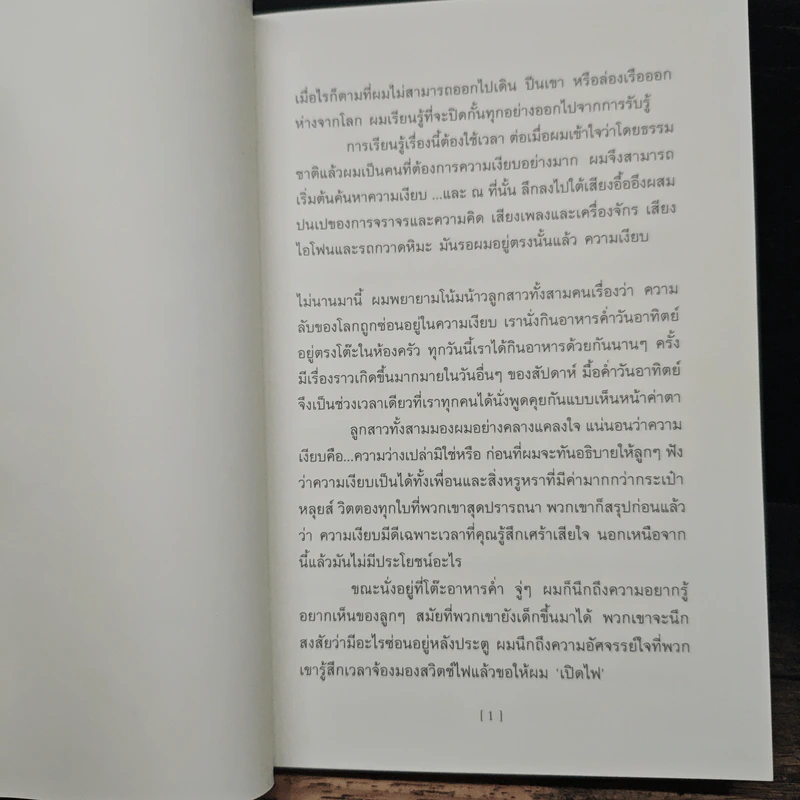 เมื่อไรก็ตามที่ผมไม่สามารถออกไปเดิน ปีนเขา หรือล่องเรือออก
ห่างจากโลก ผมเรียนรู้ที่จะปิดกั้นทุกอย่างออกไปจากการรับรู้
การเรียนรู้เรื่องนี้ต้องใช้เวลา ต่อเมื่อผมเข้าใจว่าโดยธรรม
ชาติแล้วผมเป็นคนที่ต้องการความเงียบอย่างมาก ผมจึงสามารถ
เริ่มต้นค้นหาความเงียบ ...และ ณ ที่นั้น ลึกลงไปใต้เสียงอื้ออึงผสม
ปนเปของการจราจรและความคิด เสียงเพลงและเครื่องจักร เสียง
ไอโฟนและรถกวาดหิมะ มันรอผมอยู่ตรงนั้นแล้ว ความเงียบ
ไม่นานมานี้ ผมพยายามโน้มน้าวลูกสาวทั้งสามคนเรื่องว่า ความ
ลับของโลกถูกซ่อนอยู่ในความเงียบ เรานั่งกินอาหารค่ำวันอาทิตย์
อยู่ตรงโต๊ะในห้องครัว ทุกวันนี้เราได้กินอาหารด้วยกันนานๆ ครั้ง
มีเรื่องราวเกิดขึ้นมากมายในวันอื่นๆ ของสัปดาห์ มื้อค่ำวันอาทิตย์
จึงเป็นช่วงเวลาเดียวที่เราทุกคนได้นั่งพูดคุยกันแบบเห็นหน้าค่าตา
ลูกสาวทั้งสามมองผมอย่างคลางแคลงใจ แน่นอนว่าความ
เงียบคือ...ความว่างเปล่ามิใช่หรือ ก่อนที่ผมจะทันอธิบายให้ลูกๆ ฟัง
ว่าความเงียบเป็นได้ทั้งเพื่อนและสิ่งหรูหราที่มีค่ามากกว่ากระเป๋า
หลุยส์ วิตตองทุกใบที่พวกเขาสุดปรารถนา พวกเขาก็สรุปก่อนแล้ว
ว่า ความเงียบมีดีเฉพาะเวลาที่คุณรู้สึกเศร้าเสียใจ นอกเหนือจาก
นี้แล้วมันไม่มีประโยชน์อะไร
ขณะนั่งอยู่ที่โต๊ะอาหารค่ำ จู่ๆ ผมก็นึกถึงความอยากรู้
อยากเห็นของลูกๆ สมัยที่พวกเขายังเด็กขึ้นมาได้ พวกเขาจะนึก
สงสัยว่ามีอะไรซ่อนอยู่หลังประตู ผมนึกถึงความอัศจรรย์ใจที่พวก
เขารู้สึกเวลาจ้องมองสวิตช์ไฟแล้วขอให้ผม 'เปิดไฟ'
[ 1 ]